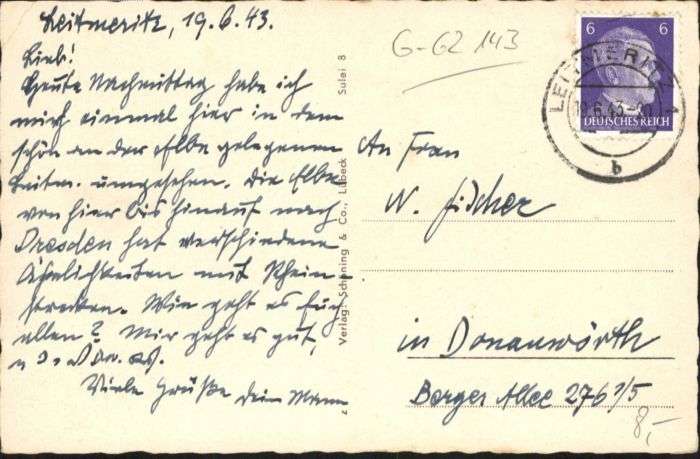 Leitmeritz, 19.6.43.
Lieb!
Heute Nachmittag habe ich
mich einmal hier in dem
schön an der Elbe gelegenen
Leitm. umgesehen. Die Elbe
von hier bis hinauf nach
Dresden hat verschiedene
Ähnlichkeiten mit Rhein-
strecken. Wie geht es Euch
allen? Mir geht es gut,
Viele Grüße Dein Mann
Verlag: Schöning & Co., Lübeck
Sulei 8
G-62 143
6 6
DEUTSCHES REICH
LEITMERITZ 1
19.6.43
b
An Frau
W. Fischer
in Donauwörth
Berger Allee 276 1/5
8,-